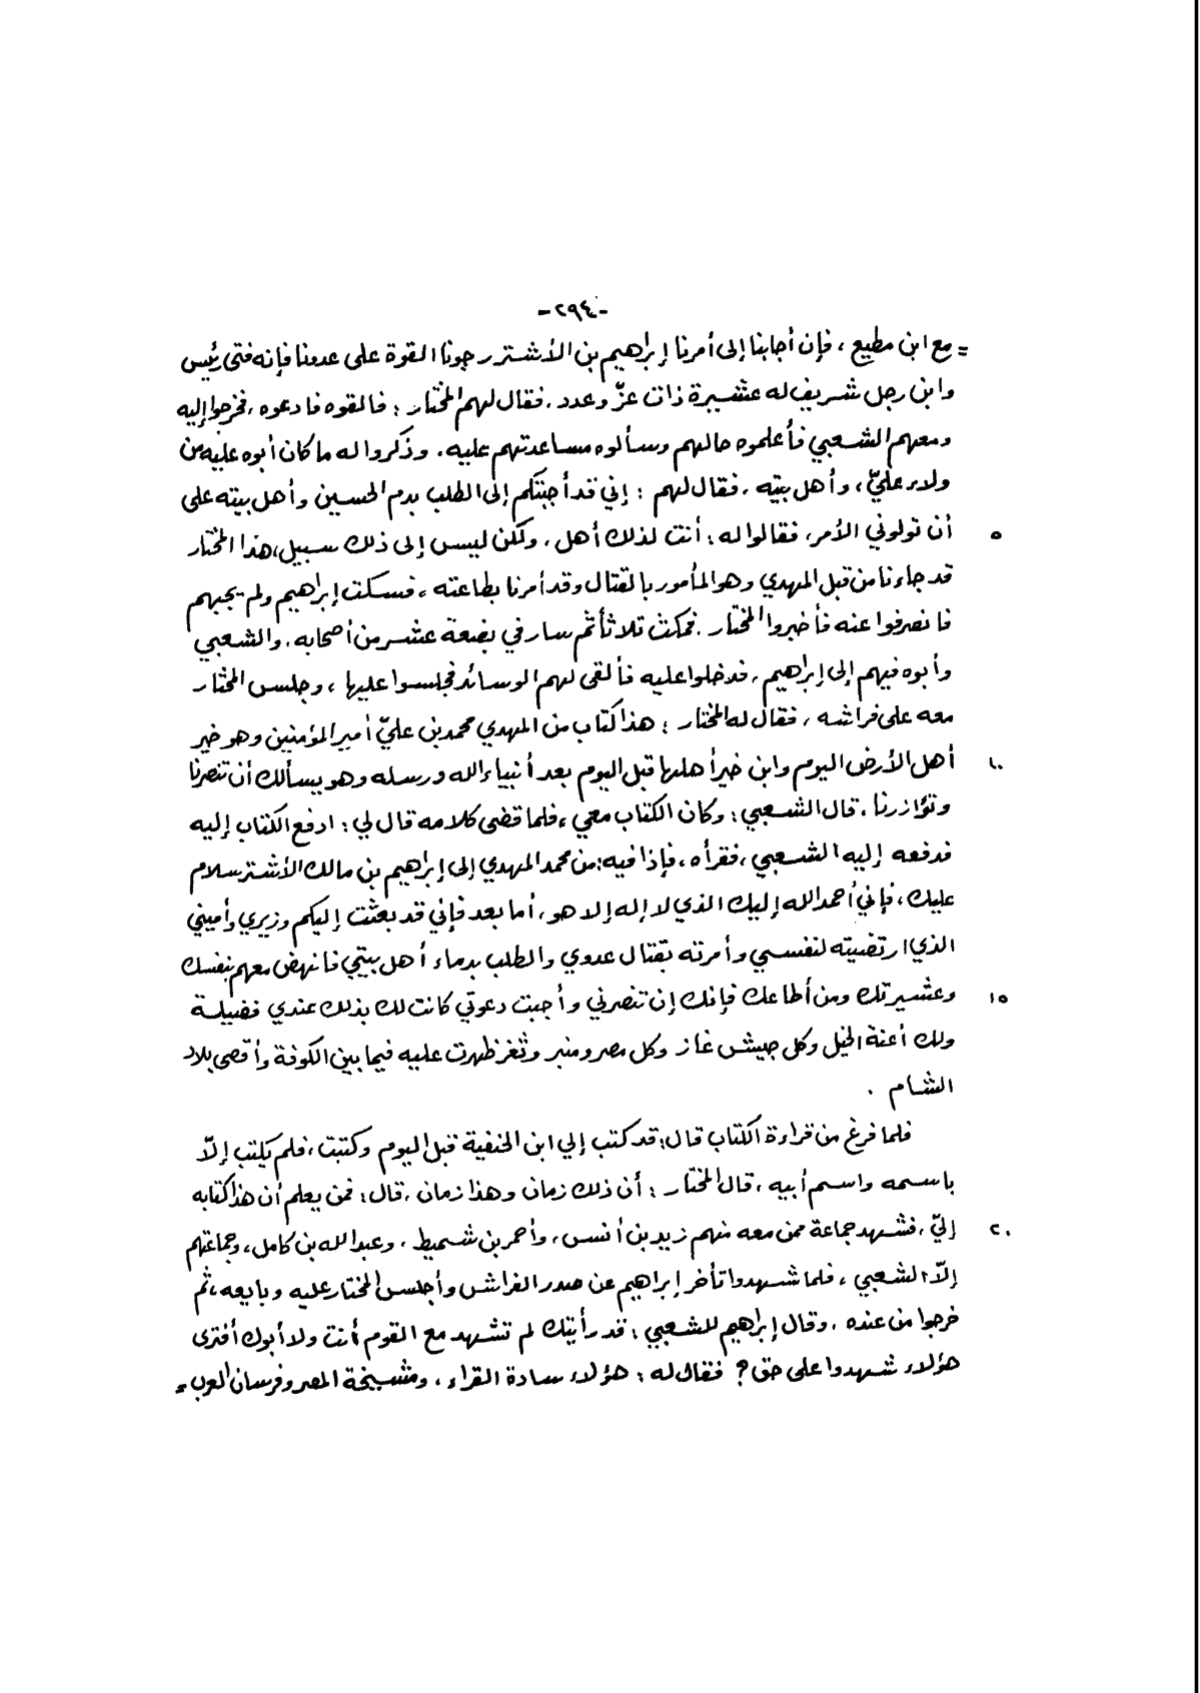 -٢٩٤-
= مع ابن مطيع ، فإن أجابنا إلى أمرنا إبراهيم بن الأشتر رجونا القوة على عدونا فإنه فتى رئيس
وابن رجل شريف له عشيرة ذات عزّ وعدد . فقال لهم المختار : فالقوه فادعوه ، فخرجوا إليه
ومعهم الشعبي فأعلموه حالهم وسألوه مساعدتهم عليه . وذكروا له ما كان أبوه عليه من
ولاء عليّ ، وأهل بيته . فقال لهم : إني قد أجبتكم إلى الطلب بدم الحسين وأهل بيته على
أن تولوني الأمر، فقالوا له : أنت لذلك أهل ، ولكن ليس إلى ذلك سبيل، هذا المختار ٥
قد جاءنا من قبل المهدي وهو المأمور بالقتال وقد أمرنا بطاعته ، فسكت إبراهيم ولم يجبهم
فانصرفوا عنه فأخبروا المختار . فمكث ثلاثاً ثم سار في بضعة عشر من أصحابه . والشعبي
وأبوه فيهم إلى إبراهيم ، فدخلوا عليه فألقى لهم الوسائد فجلسوا عليها ، وجلس المختار
معه على فراشه ، فقال له المختار : هذا كتاب من المهدي محمد بن عليّ أمير المؤمنين وهو خير
أهل الأرض اليوم وابن خير أهلها قبل اليوم بعد أنبياء الله ورسله وهو يسألك أن تنصرنا ١٠
وتؤازرنا . قال الشعبي : وكان الكتاب معي ، فلما قضى كلامه قال لي : ادفع الكتاب إليه
فدفعه إليه الشعبي ، فقرأه ، فإذا فيه : من محمد المهدي إلى إبراهيم بن مالك الأشتر سلام
عليك ، فإني أحمد الله إليك الذي لا إله إلا هو ، أما بعد فإني قد بعثت إليكم وزيري وأميني
الذي ارتضيته لنفسي وأمرته بقتال عدوي والطلب بدماء أهل بيتي فانهض معهم بنفسك
وعشيرتك ومن أطاعك فإنك إن تنصرني وأجبت دعوتي كانت لك بذلك عندي فضيلة ١٥
ولك أعنة الخيل وكل جيش غاز وكل مصر ومنبر وثغر ظهرت عليه فيما بين الكوفة وأقصى بلاد
الشام .
فلما فرغ من قراءة الكتاب قال : قد كتب إلي ابن الحنفية قبل اليوم وكتبت ، فلم يكتب إلاّ
باسمه واسم أبيه ، قال المختار : أن ذلك زمان وهذا زمان ، قال : فمن يعلم أن هذا كتابه
إليّ ، فشهد جماعة ممن معه منهم زيد بن أنس ، وأحمر بن شميط ، وعبد الله بن كامل ، وجماعتهم ٢٠
إلاّ الشعبي ، فلما شهدوا تأخر إبراهيم عن صدر الفراش وأجلس المختار عليه وبايعه ، ثم
خرجوا من عنده ، وقال إبراهيم للشعبي : قد رأيتك لم تشهد مع القوم أنت ولا أبوك أفترى
هؤلاء شهدوا على حق ؟ فقال له : هؤلاء سادة القراء ، ومشيخة المصر وفرسان العرب =